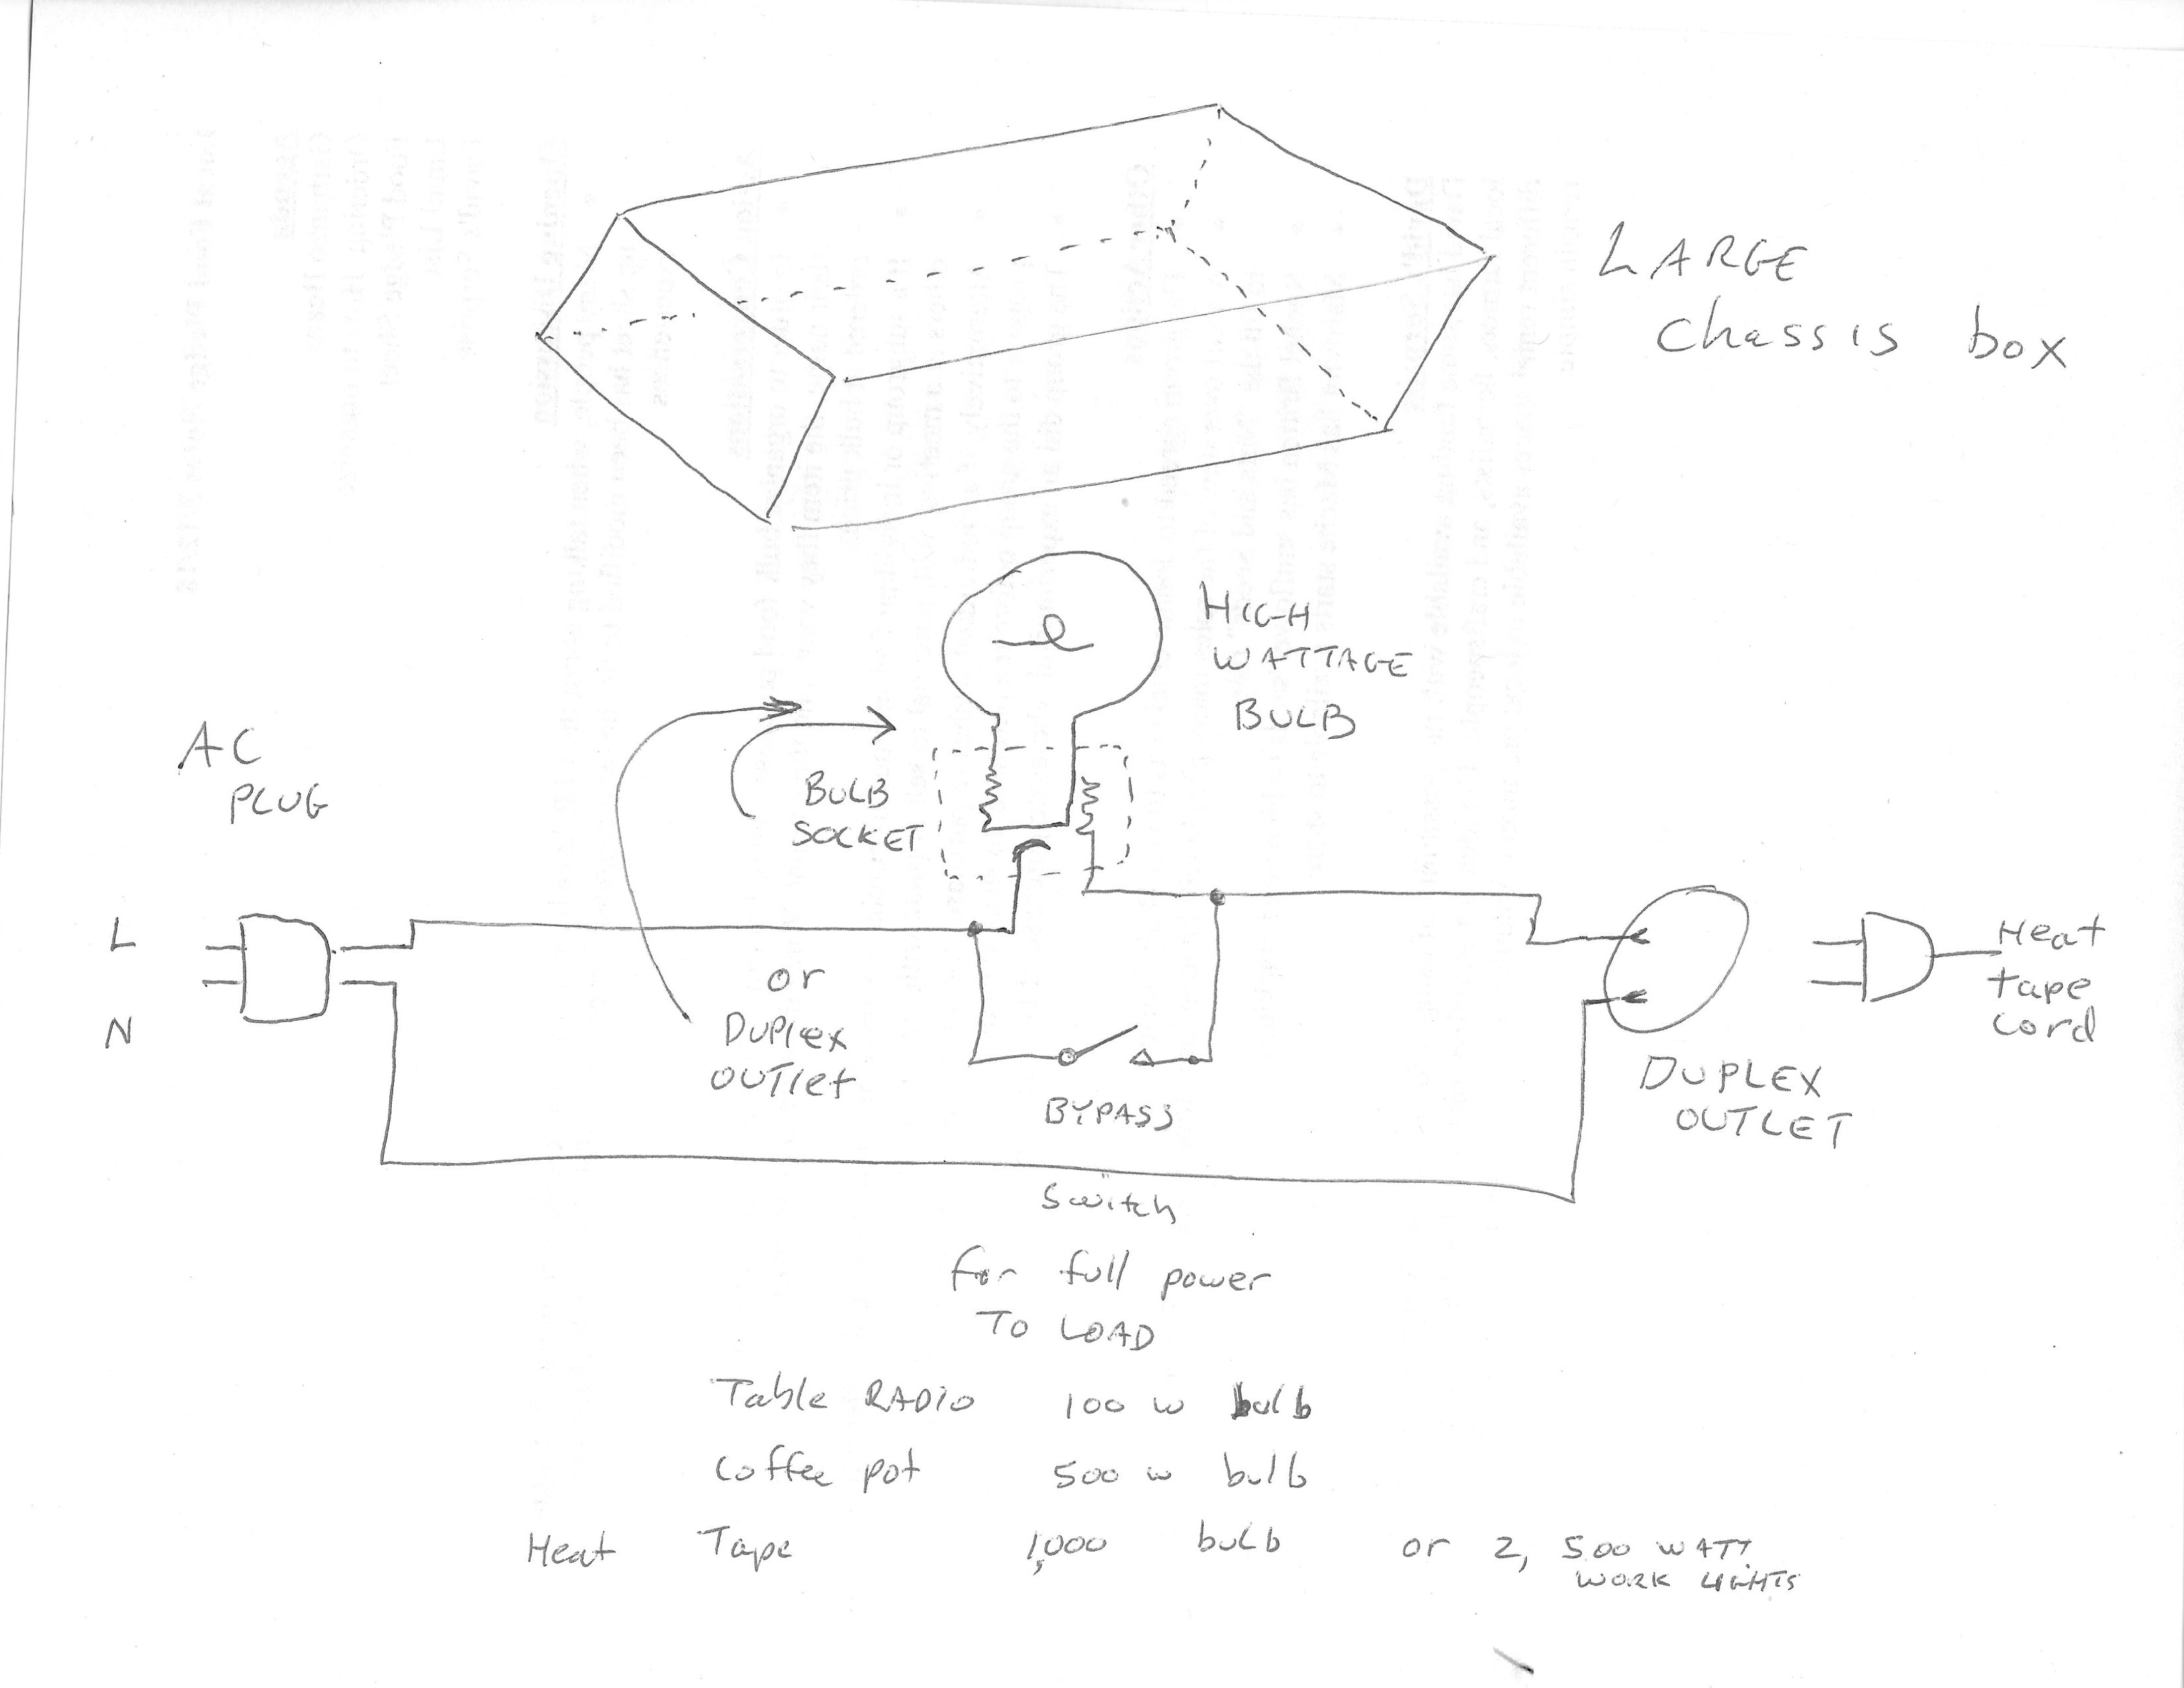 LARGE
Chassis box
HIGH
WATTAGE
BULB
AC
PLUG
BULB
SOCKET
L
N
or
DUPlex
OUTlet
BYPASS
Heat
tape
cord
DUPLEX
OUTLET
Switch
for full power
TO LOAD
Table RADIO 100 W bulb
Coffee pot 500 W bulb
Heat Tape 1,000 bulb or 2, 500 WATT
WORK LIGHTS